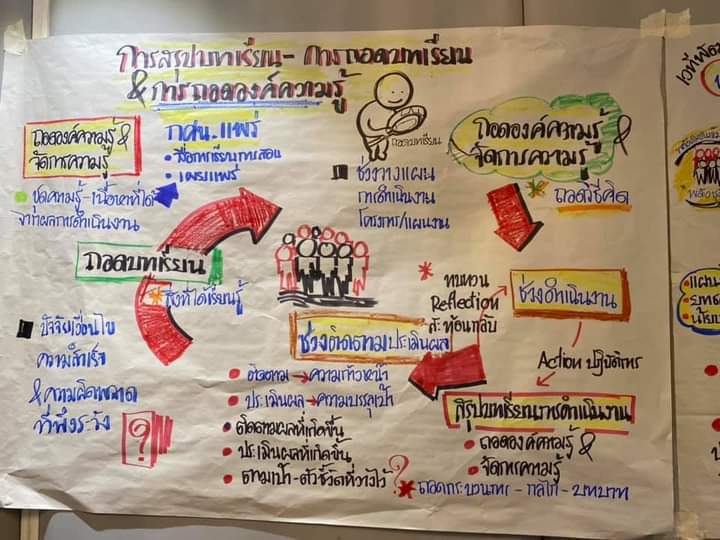 การสรุปบทเรียน - การถอดบทเรียน
& การถอดองค์ความรู้
ถอดองค์ความรู้ &
จัดการความรู้
ชุดความรู้ - เนื้อหาที่ได้
จากผลการดำเนินงาน
กศน. แพร่
สื่อการเรียนการสอน
เผยแพร่
ถอดบทเรียน
ช่วงวางแผน
การดำเนินงาน
โครงการ/แผนงาน
ถอดองค์ความรู้ &
จัดการความรู้
ถอดวิธีคิด
ถอดบทเรียน
สิ่งที่ได้เรียนรู้
ปัจจัยเงื่อนไข
ความสำเร็จ
& ความผิดพลาด
ที่พึงระวัง
?
ทบทวน
Reflection
สะท้อนกลับ
ช่วงดำเนินงาน
Action ปฏิบัติการ
ช่วงติดตามประเมินผล
ติดตาม → ความก้าวหน้า
ประเมินผล → ความบรรลุเป้า
ติดตามผลที่เกิดขึ้น
ประเมินผลที่เกิดขึ้น
ตามเป้า - ตัวชี้วัดที่วางไว้ ?
สรุปบทเรียนการดำเนินงาน
ถอดองค์ความรู้ &
จัดการความรู้
ถอดกระบวนการ - กลไก - บทบาท